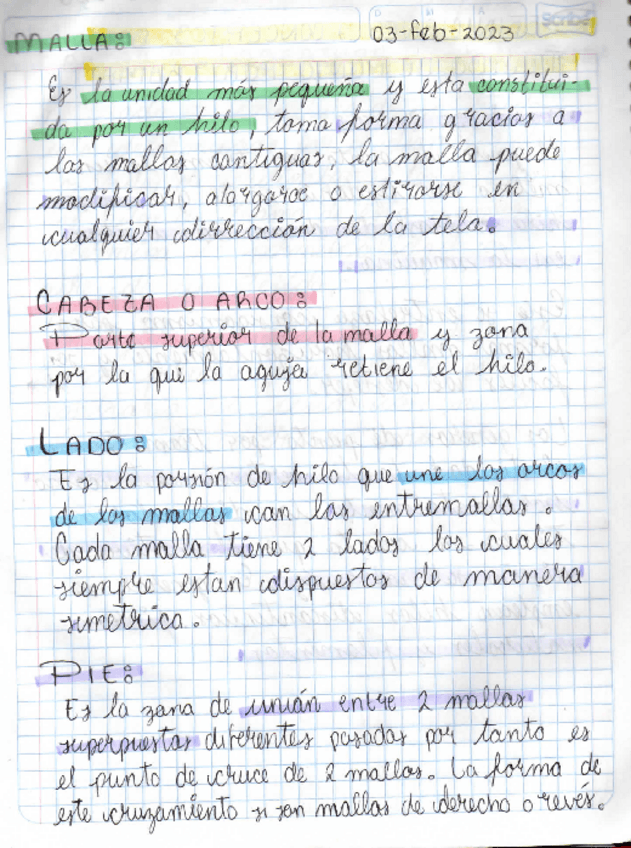 MALLA:
03-feb-2023
scribe
Es la unidad más pequeña y esta constitui-
da por un hilo, toma forma gracias a
las mallas contiguas, la malla puede
modificar, alargarse o estirarse en
cualquier dirrección de la tela.
CABEZA O ARCO:
Parte superior de la malla y zona
por la que la aguja retiene el hilo.
LADO:
Es la porsión de hilo que une los arcos
de las mallas con las entremallas.
Cada malla tiene 2 lados los cuales
siempre estan dispuestos de manera
simetrica.
PIE:
Es la zona de unión entre 2 mallas
superpuestas diferentes pasadas por tanto es
el punto de cruce de 2 mallas. La forma de
este cruzamiento si son mallas de derecho o revés.